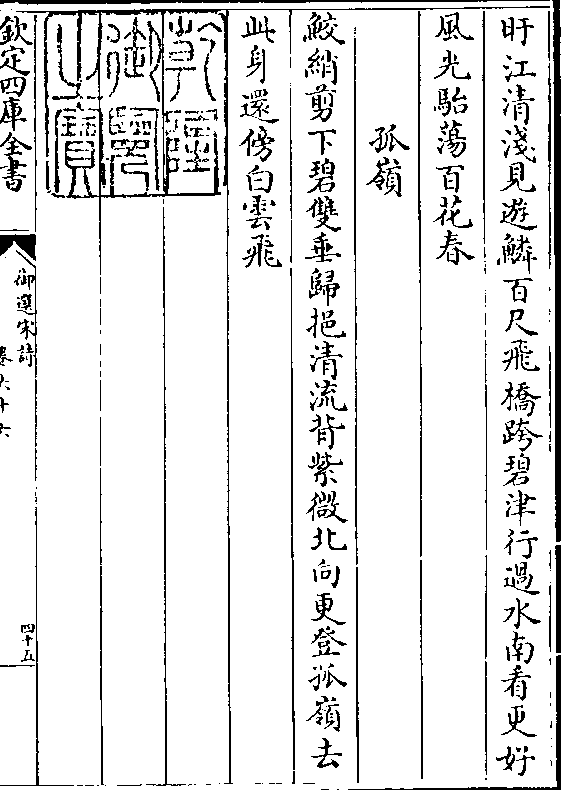 旴江清淺見遊鱗百尺飛橋跨碧津行過水南看更好
風光駘蕩百花春
孤嶺
鮫綃剪下碧雙垂歸挹清流背紫微北向更登孤嶺去
此身還傍白雲飛
乾隆
御覽
之寶
欽定四庫全書
御選宋詩
卷六十六
四十五